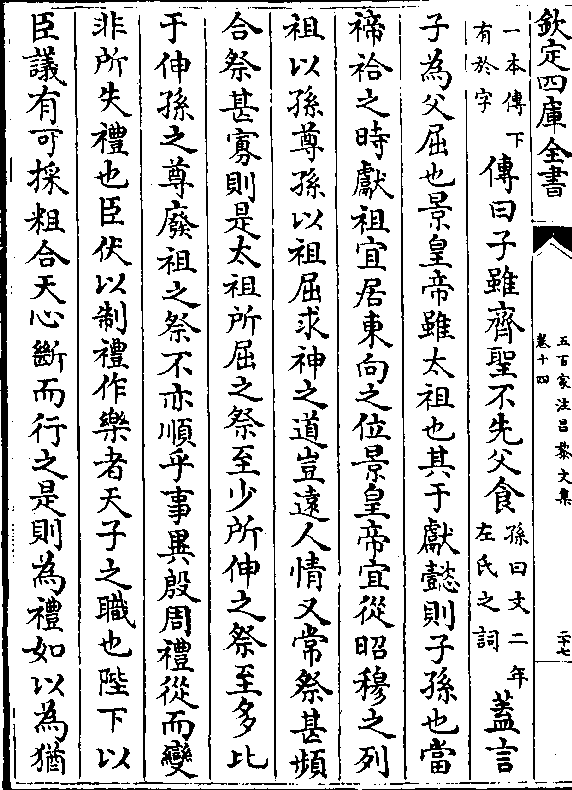 欽定四庫全書
五百家注昌黎文集
卷十四
二十七
一本傳下
有於字
傳曰子雖齊聖不先父食
孫曰文二年
左氏之詞
蓋言
子為父屈也景皇帝雖太祖也其于獻懿則子孫也當
禘祫之時獻祖宜居東向之位景皇帝宜從昭穆之列
祖以孫尊孫以祖屈求神之道豈遠人情又常祭甚頻
合祭甚寡則是太祖所屈之祭至少所伸之祭至多比
于伸孫之尊廢祖之祭不亦順乎事異殷周禮從而變
非所失禮也臣伏以制禮作樂者天子之職也陛下以
臣議有可採粗合天心斷而行之是則為禮如以為猶